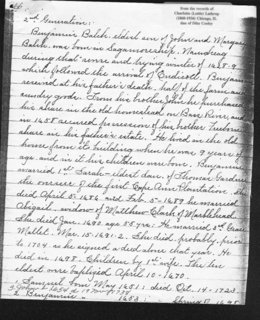 From the records of
Charlotte (Lester) Lathrop
(1860-1934) Chicago, Il.
2nd Generation:
Benjamin Balch eldest son of John and Margaret
Balch was born in Saganworship, Naumkeag
during that severe and trying winter of 1628-9
which followed the arrival of Endicott. Benjamin
received at his father's death, half of the farm and
sundry goods. From his brother John he purchased
his share in the old homestead on Bass River, and
in 1658 secured possession of his brother Freeborn's
share in his father's estate. He lived in the old
home from its building when he was 9 years of
age and in it his children were born. Benjamin
married 1st Sarah - eldest dau. of Thomas Gardner
the overseer of the first Cape Ann Plantation. She
died April 5. 1686 and Feb. 5-1689 he married
Abigail widow of Matthew Clark of Marblehead.
She died Jan. 1690 aged 55 yrs. He married 3rd Grace
Mallet. Mar. 15-1691-2. She died probably, prior
to 1704 as he signed a deed alone that year. He
died in 1698. Children by 1st wife. The five
eldest were baptized April 10-1670.
1. Samuel born May 1651: died Oct. 14-1723.
2. Benjamin